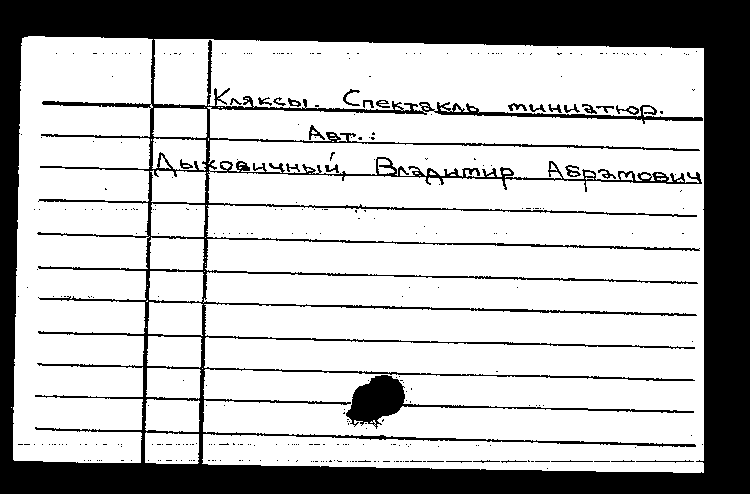 Кляксы. Спектакль миниатюр.
Авт.:
Дыховичный, Владимир Абрамович